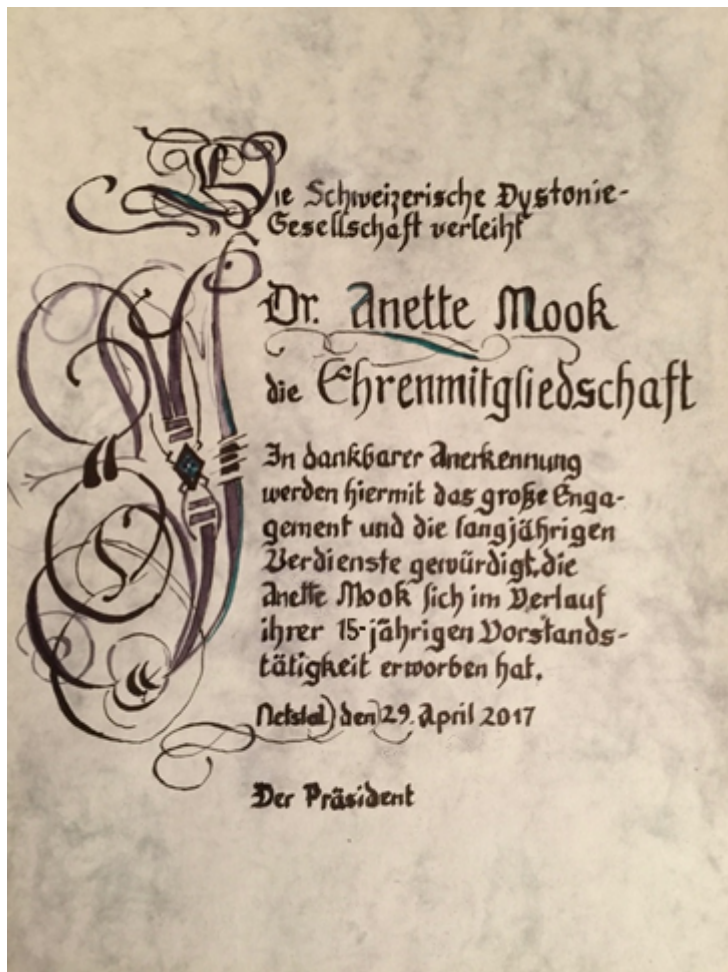 Die Schweizerische Dystonie-
Gesellschaft verleiht
Dr. Anette Mook
die Ehrenmitgliedschaft
In dankbarer Anerkennung
werden hiermit das große Enga-
gement und die langjährigen
Verdienste gewürdigt, die
Anette Mook sich im Verlauf
ihrer 15-jährigen Vorstands-
tätigkeit erworben hat.
Netstal, den 29. April 2017
Der Präsident